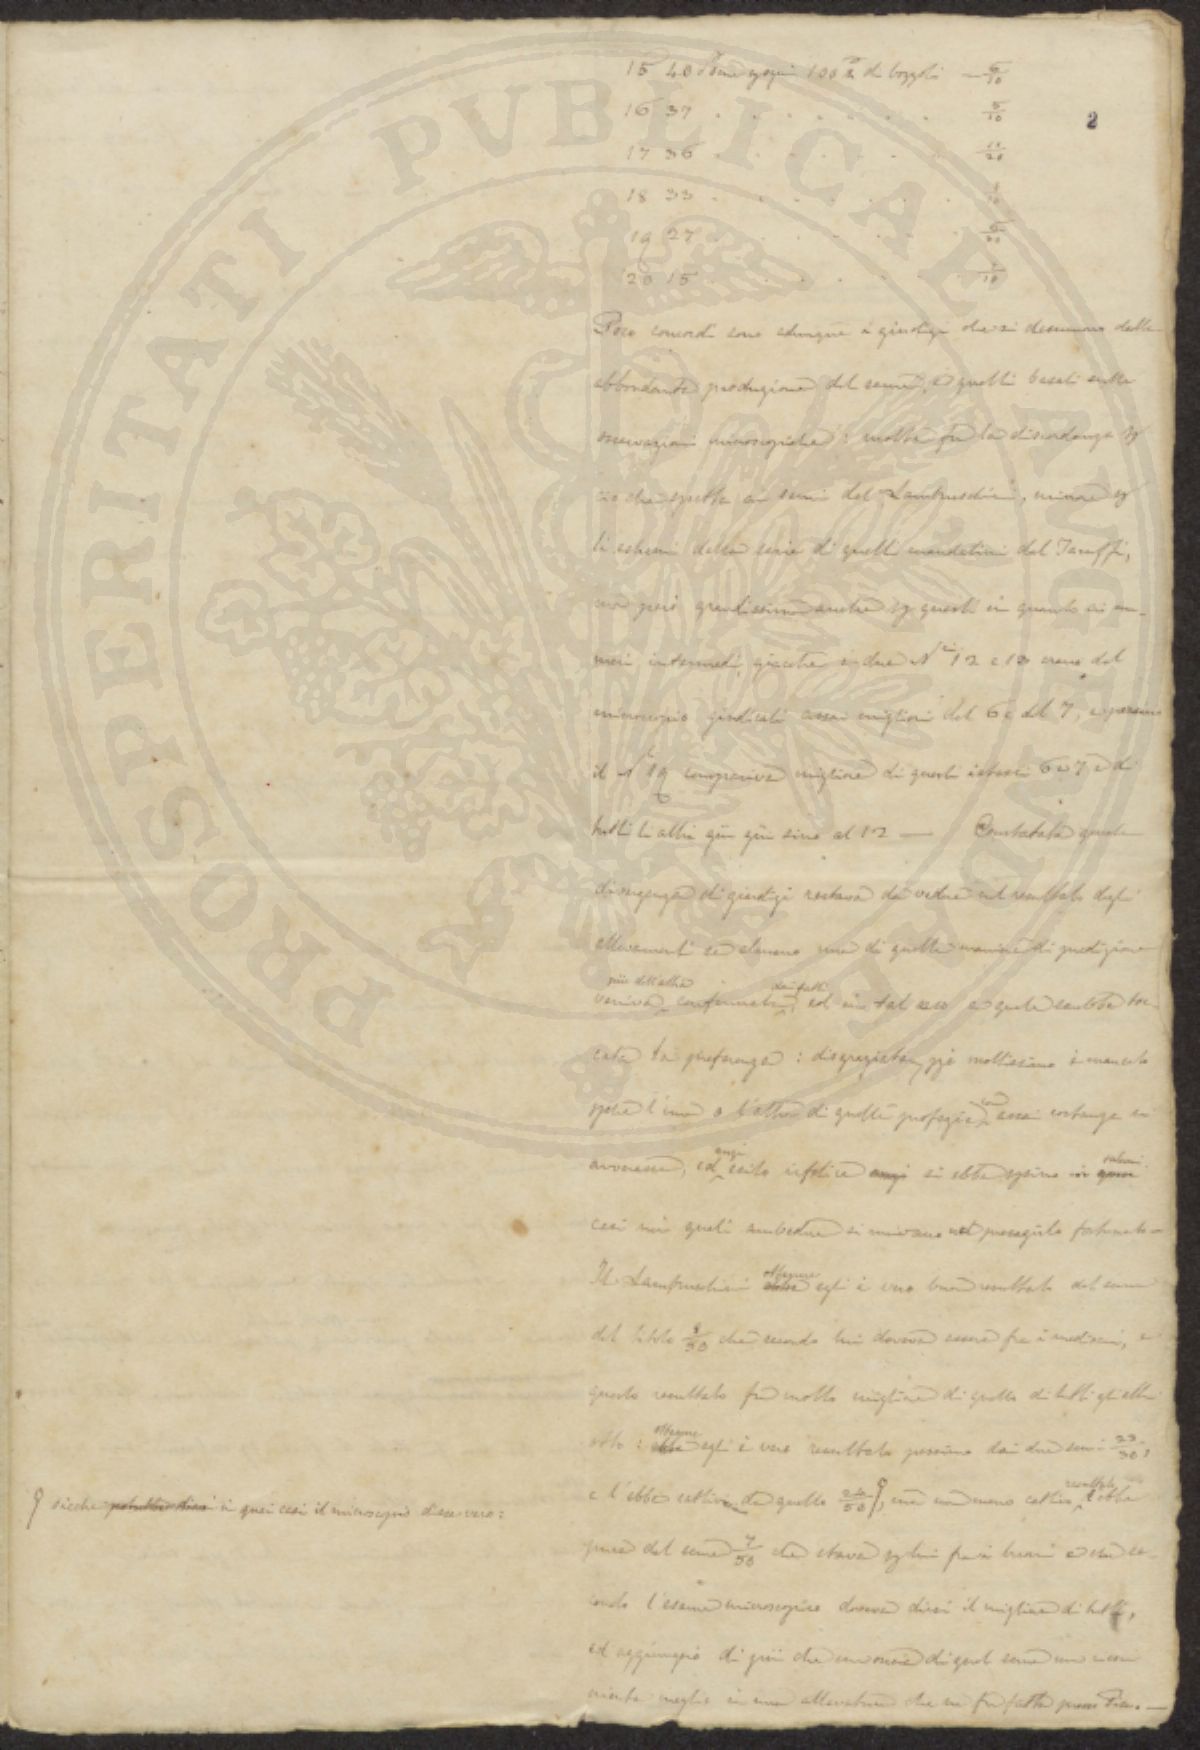 PROSPERITATI PUBLICAE AUGENDAE
2
15 40 seme ogni 100 di bozzoli — 5/10
16 37 . . . . . . . 5/10
17 36 . . . . . . . 11/20
18 33 . . . . . . .
19 27 . . . . . . .
20 15 . . . . . .
Poco concordi sono adunque i giudizi che si desumono dalla
abbondante produzione del seme, e quelli basati sulle
osservazioni microscopiche: molta fu la discordanza per
ciò che spetta ai semi del Lambruschini, minore per
li estremi della serie di quelli mandatimi dal Taruffi,
ma però grandissima anche per questi in quanto ai nu-
meri intermedi, giacché i due N.i 12 e 13 erano dal
microscopio giudicati assai migliori del 6 e del 7, e perfino
il N.o 19 compariva migliore di questi istessi 6 e 7 e di
tutti li altri giù giù sino al 12 — Constatata questa
divergenza di giudizi restava da vedere nel resultato degli
allevamenti se almeno una di quelle maniere di predizione
veniva più dell'altra confermata dai fatti, ed in tal caso a quale sarebbe toc-
cata la preferenza: disgraziatamente però moltissimo è mancato
perché l'una o l'altra di quelle profezie con assai costanza si
avverasse, ed anzi esito infelice anzi si ebbe persino in taluni
casi nei quali ambedue si univano nel presagirlo fortunato —
Il Lambruschini ottenne egli è vero buon resultato dal seme
del titolo /50 che secondo lui doveva essere fra i mediocri, e
questo resultato fu molto migliore di quello di tutti gli altri
otto: ottenne egli è vero resultato pessimo dai due semi 23/50,
e l'ebbe cattivo da quello 24/50, ma non meno cattivo resultato l'ebbe
pure dal seme 7/50 che stava per lui fra i buoni e che se-
condo l'esame microscopico doveva dirsi il migliore di tutti,
ed aggiungasi di più che un'oncia di quel seme non
meglio in una allevatura che ne fu fatta presso Pisa. —
sicché in quei casi il microscopio disse vero: